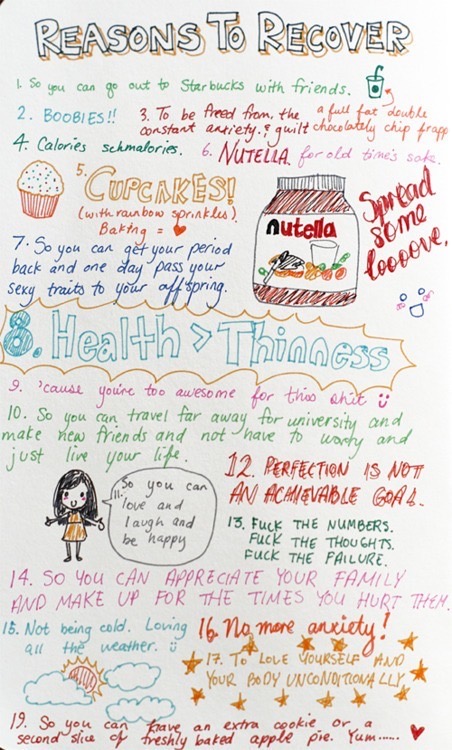 REASONS TO RECOVER
1. So you can go out to Starbucks with friends.
a full fat double
chocolately chip frapp
2. BOOBIES!!
3. To be freed from the
constant anxiety & guilt
4. Calories schmalories.
6. NUTELLA for old time's sake.
5.
CUPCAKES!
(with rainbow sprinkles).
Baking = ♥
nutella
Spread
some
loooove.
7. So you can get your period
back and one day pass your
sexy traits to your offspring.
8. Health > Thinness
9. 'cause you're too awesome for this shit
10. So you can travel far away for university and
make new friends and not have to worry and
just live your life.
11. So you can
love and
laugh and
be happy
12. PERFECTION IS NOT
AN ACHIEVABLE GOAL.
13. FUCK THE NUMBERS.
FUCK THE THOUGHTS.
FUCK THE FAILURE.
14. SO YOU CAN APPRECIATE YOUR FAMILY
AND MAKE UP FOR THE TIMES YOU HURT THEM.
15. Not being cold. Loving
all the weather.
16. No more anxiety!
17. TO LOVE YOURSELF AND
YOUR BODY UNCONDITIONALLY
19. So you can have an extra cookie or a
second slice of freshly baked apple pie. Yum.....